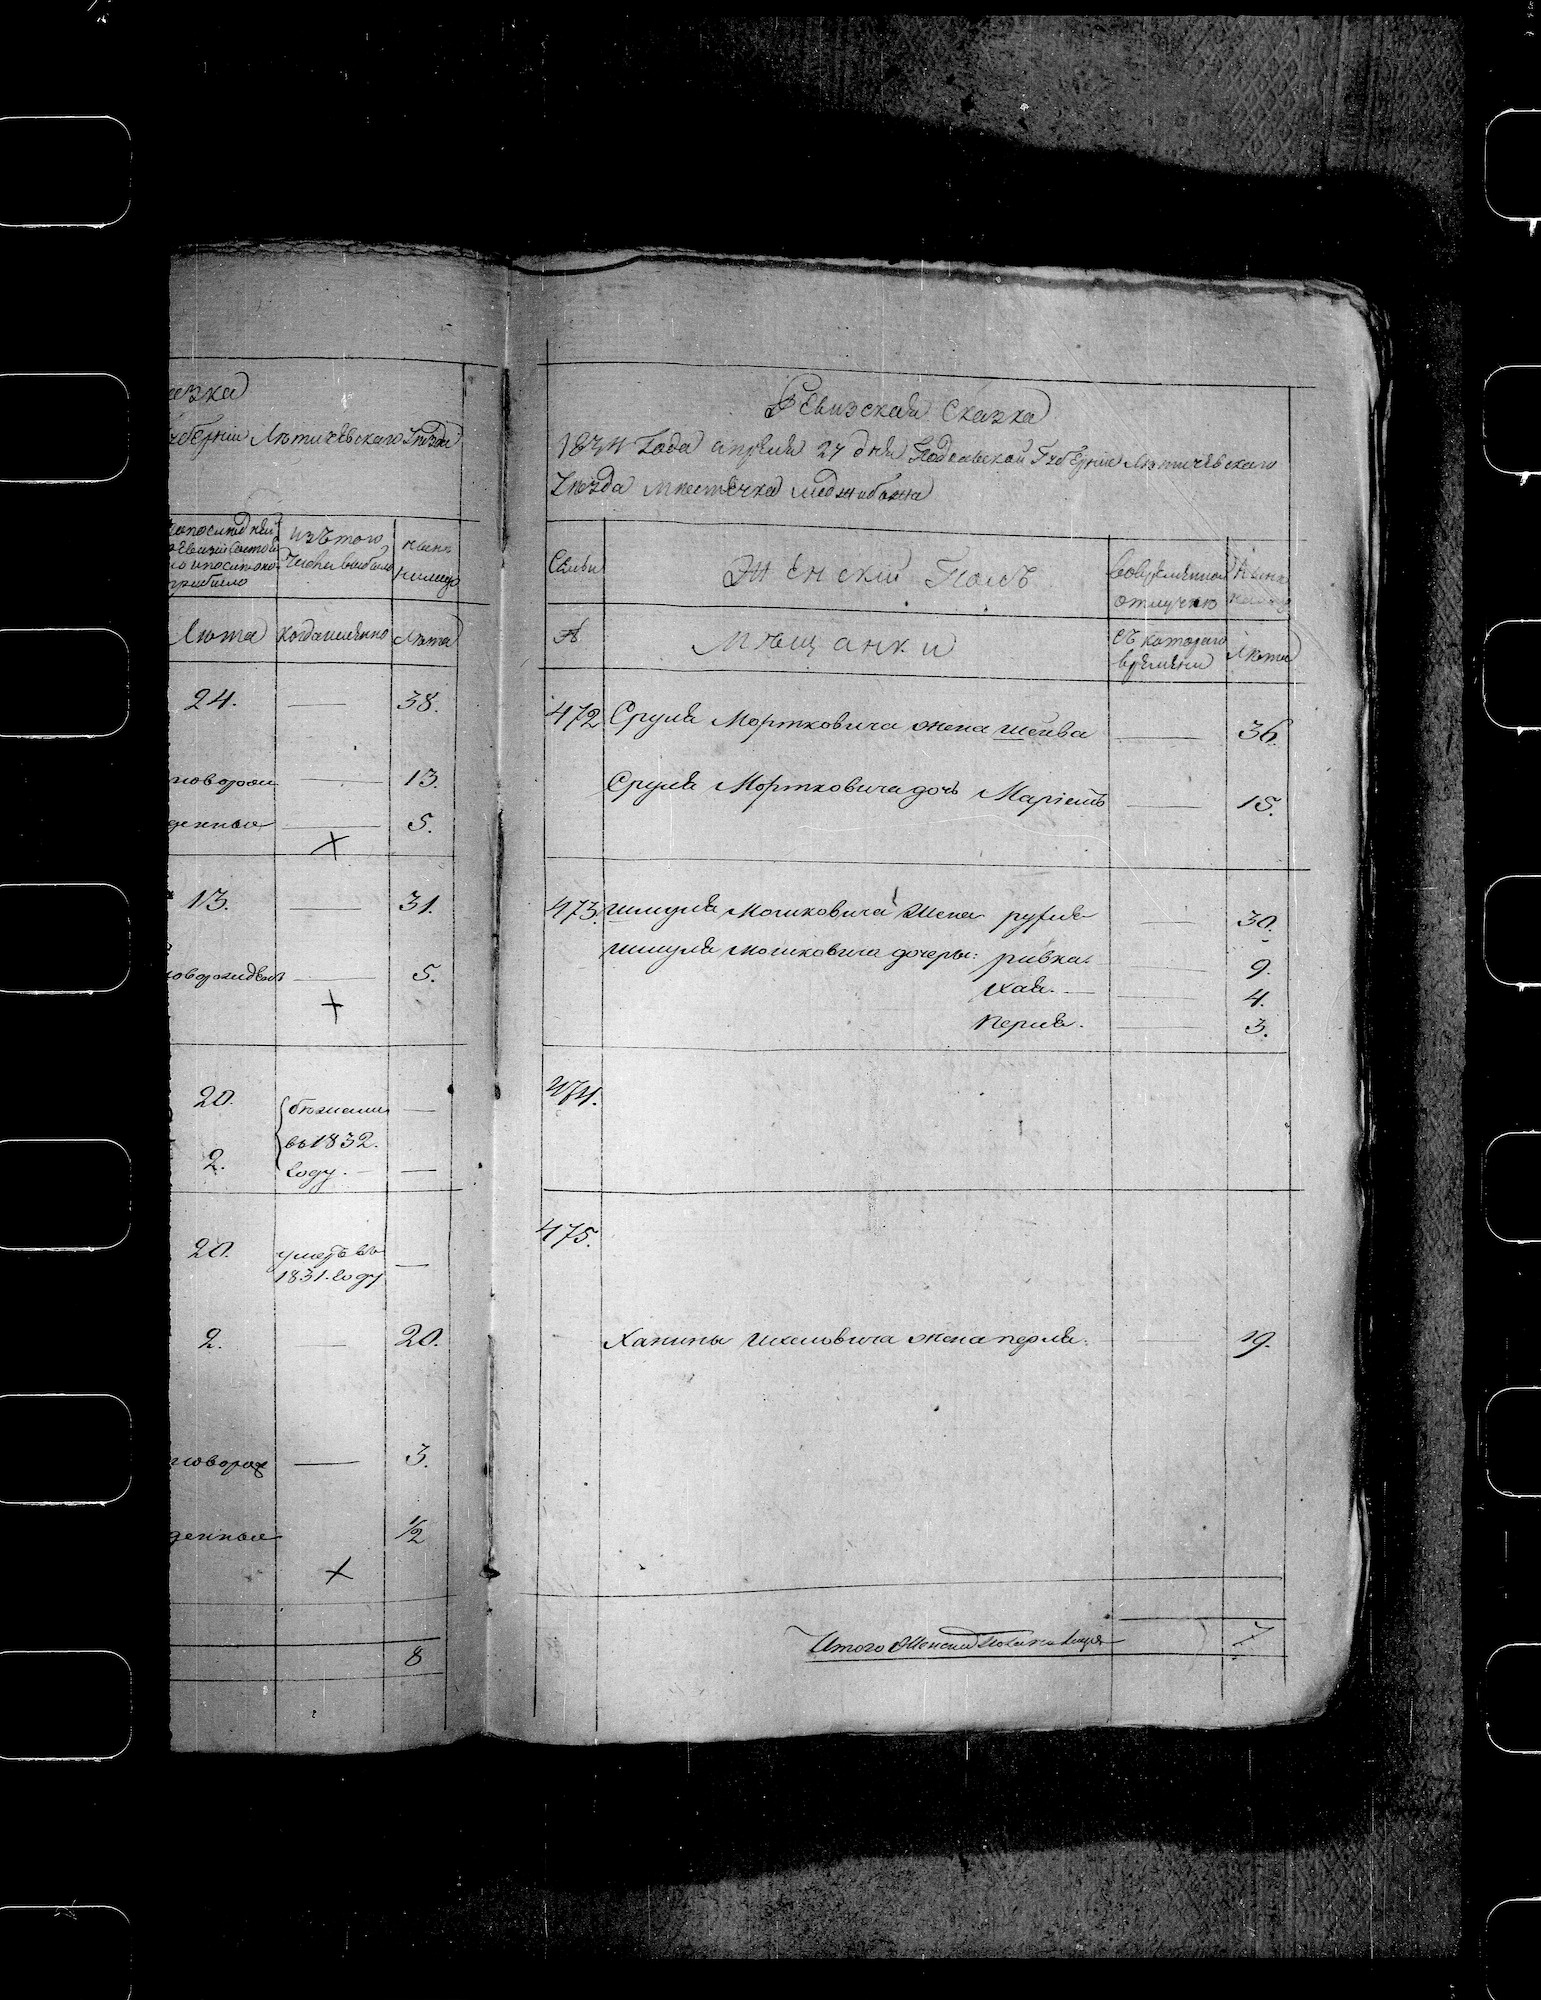 азка
губерніи Лѣтичевскаго Уѣзда
изъ того
числа выбыло
нынѣ
налицо
Лѣта
когда именно
Лѣта
24. — 38.
новорож — 13.
денные — 5.
13. — 31.
новорожденъ — 5.
20. бѣжали —
въ 1832.
2. году. —
20. умеръ въ —
1831. году
2. — 20.
новорож — 3.
денные ½
8
Ревизская Сказка
1834 Года апреля 27 дня Подольской Губерніи Лѣтичевскаго
Уѣзда мѣстечка Меджибожа
Семьи
Женскій Полъ
Во временной
отлучкѣ
Нынѣ
налицо
№
мѣщанки
съ котораго
времени
Лѣта
472 Сруля Мортковича жена шейва — 36.
Сруля Мортковича дочь Маріемъ — 15.
473. шмуля Мошковича жена рухля — 30.
шмуля мошковича дочеры: ривка. — 9.
хая. — 4.
перля. — 3.
474.
475.
Ханины ихеловича жена перля. — 19.
Итого Женска Пола на лицо 7